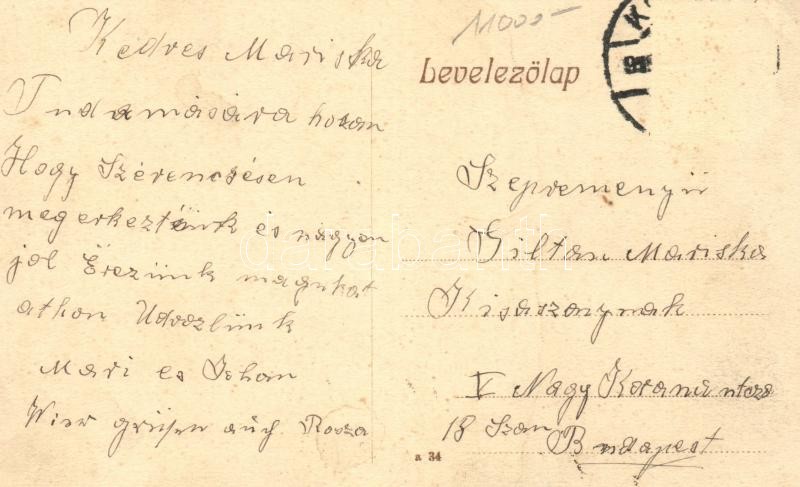 Kedves Mariska
Tudamására hozan
Hogy Szérencsésen
megerkeztünk és nagyon
jol Érezünk magukat
athon Udvozlünk
Mari es Johan
Wier grüsen auch Rosza
11000-
Levelezőlap
Szepremenyü
Giltan Mariska
Kisaszonynak
V Nagy Korana utcza
18 Szam
Budapest
a 34
darabanth